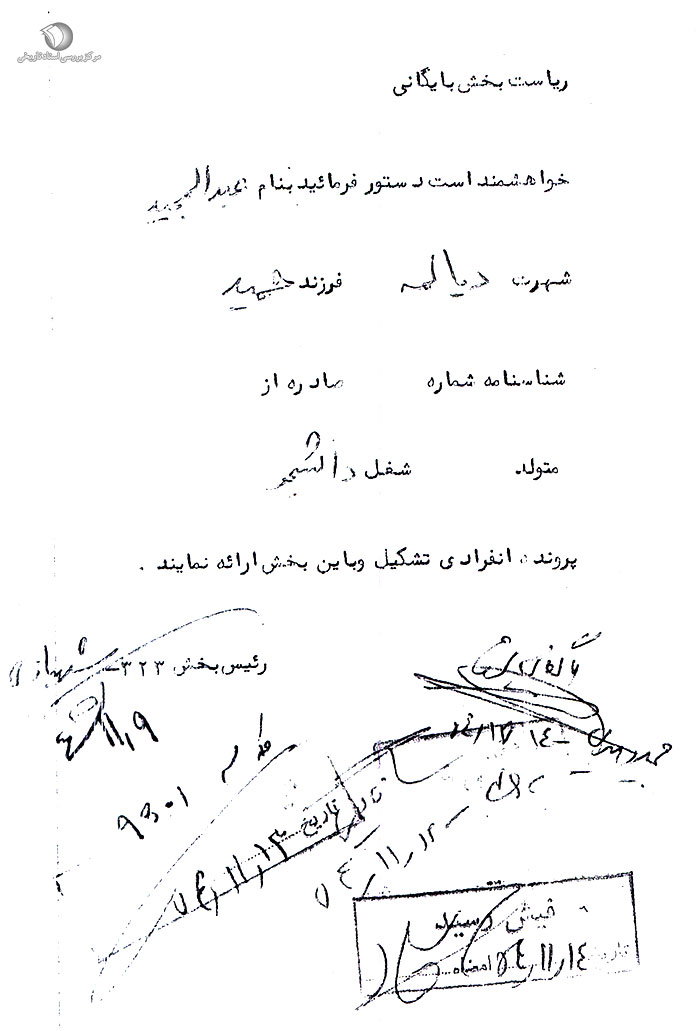 مرکز بررسی اسناد تاریخی
ریاست بخش بایگانی
خواهشمند است دستور فرمائید بنام عبدالمجید
شهرت دیالمه فرزند حمید
شناسنامه شماره صادره از
متولد شغل دانشجو
پرونده انفرادی تشکیل وباین بخش ارائه نمایند .
رئیس بخش ۳۲۳ شهبازی
۹۳۰۱
تاریخ ۵٤/۱۱/۱۳
۵٤/۱۱/۱۲
فیش رسید
تاریخ ۵٤/۱۱/۱٤ امضاء